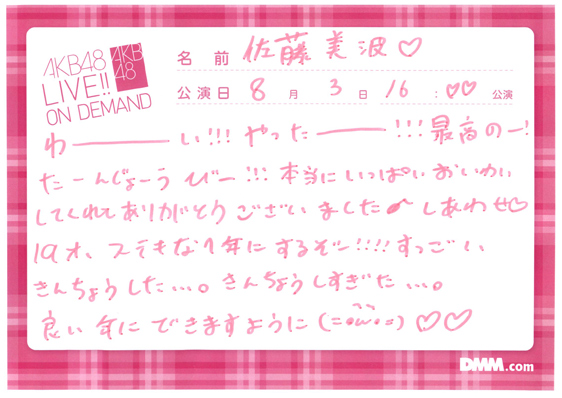 AKB48
LIVE!!
ON DEMAND
AKB
48
名前 佐藤美波♡
公演日 8月3日16:♡♡公演
わーーーい!!! やったーーー!!! 最高のー!
たーんじょーうびー!!! 本当にいっぱいおいわい
してくれてありがとうございました しあわせ♡
19才、ステキな1年にするぞー!!!! すっごい
きんちょうした...。きんちょうしすぎた...。
良い年にできますように(=・ω・=)♡♡
DMM.com